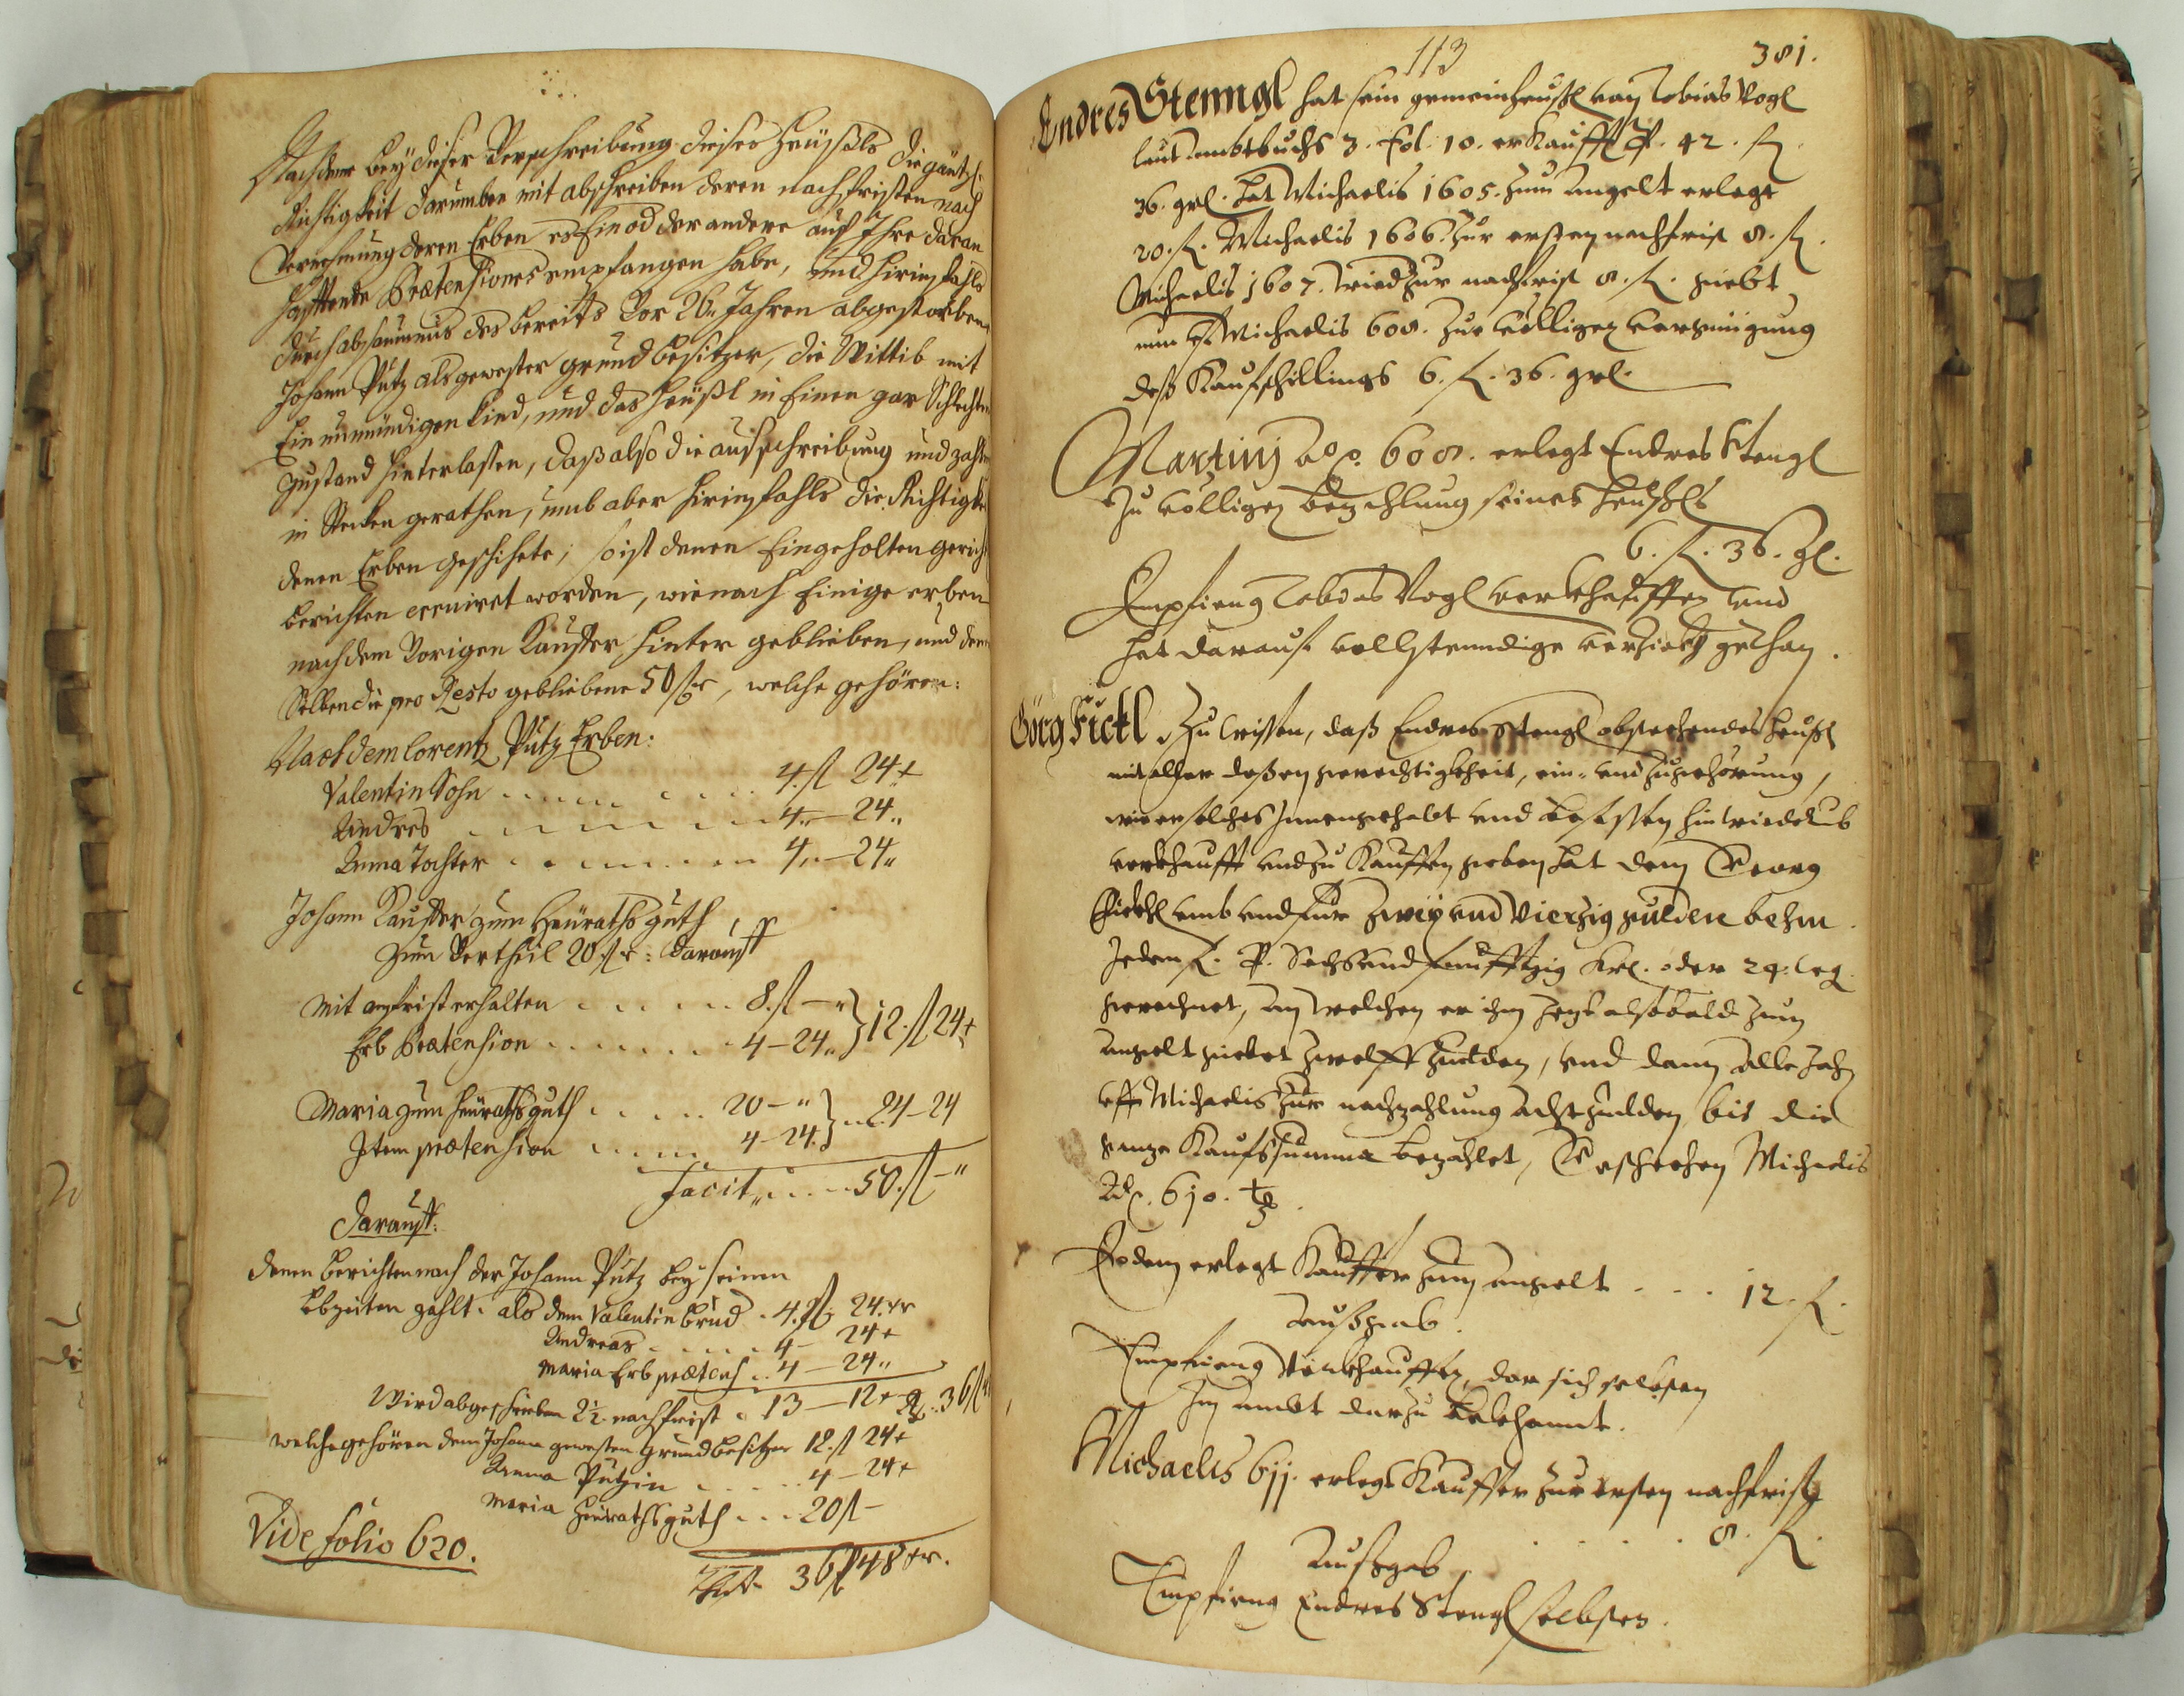 Nachdeme bey dieser Verschreibung dieses Heüßls die gäntzl:
Richtigkeit darumben mit abschreiben deren nachfristen nach
Vernehmung deren Erben es Ein od der andere auf Ihre daran
hafftende Prætensiones empfangen habe, und hirinfahls
durch absaumnus des bereits Vor 26. Jahren abgestorbenen
Johann Pütz als gewester grundbesitzer, die Wittib mit
Ein unmündigen Kind, und das Heüßl in Einen gar Schlechten
Zustand hinterlassen, daß also die aufschreibung und zahlu
in Stecken gerathen, umb aber hirinfahls die Richtigke
denen Erben geschihete; so ist denen Eingeholten gerich
berichten eruiret worden, wienach Einige erben
nach dem Vorigen Kauffer hinter geblieben, und den
Selben die pro Resto gebliebene 50 fl, welche gehören:
Nach dem Lorentz Pütz Erben:
Valentin Sohn 4. fl 24 x
Andres 4 — 24
Anna Tochter 4 — 24
Johann Kauffer zum Heüraths guth
zum Vertheil 20 fl: darauff
mit anfrist erhalten 8. fl —
Erb Prætension 4 — 24 } 12. fl 24 x
Maria zum Heürathsguth 20 — "
Item prætension 4 — 24 } 24 — 24
facit 50. fl — "
darauff:
denen berichten nach der Johann Pütz bey seinen
lebzeiten zahlt. als dem Valentin brud 4. fl 24. xr
Andreas 4 — 24 x
Maria Erb prætens 4 — 24
Wird abgeschrieben 2½ nachfrist 13 — 12 x 36 fl
welche gehören dem Johann gewesten Grundbesitzer 12. fl 24 x
Anna Pützin 4 — 24 x
Maria Heürathsguth 20 fl —
Vide folio 620.
36 fl 48 xr.
113
381.
Endres Stenngl hat sein gemein heußl von Tobias Vogl
laut ambtbuchs 3. fol. 10. erkaufft P. 42. fl.
36. grl. hat Michaelis 1605. zum angelt erlegt
20. fl. Michaelis 1606. zur ersten nachfrist 8. fl.
Michaelis 1607. wied zur nachfrist 8. fl. giebt
nun Michaelis 608. zur völligen vergnügung
deß Kaufschillings 6. fl. 36. grl.
Martinj Ao. 608. erlegt Endres Stengl
zu völligen bezahlung seines Heußls
6. fl. 36. gl.
Empfieng Tobias Vogl verkhauffer und
hat darauf vollstendige verzicht gethan.
Görg Fickl Zu wissen, daß Endres Stengl obstehendes Heußl
mit aller deßen gerechtigkheit, ein- und zugehörung,
wie er solches Innengehabt und besessen hinwiederumb
verkhaufft und zu Kauffen geben hat dem Georg
Fickhl umb und für zweÿ und Vierzig gulden behm.
Jeden fl. P. Sechsund funfftzig krl. oder 24. leg.
gerechnet, an welchen er ihm jezt alsobald zum
angelt giebet zwelff gulden, und dann alle Jahr
uff Michaelis zur nachzahlung acht gulden, bis die
ganze Kaufsumma bezahlet, Geschehen Michaelis
Ao. 610.
Eodem erlegt Kauffer zum angelt 12. fl.
Außgab.
Empfieng Verkhauffer, der sich selbsten
Im ambt darzu bekhannt.
Michaelis 611. erlegt Kauffer zur ersten nachfrist
8. fl.
Außgab
Empfieng Endres Stengl selbsten.